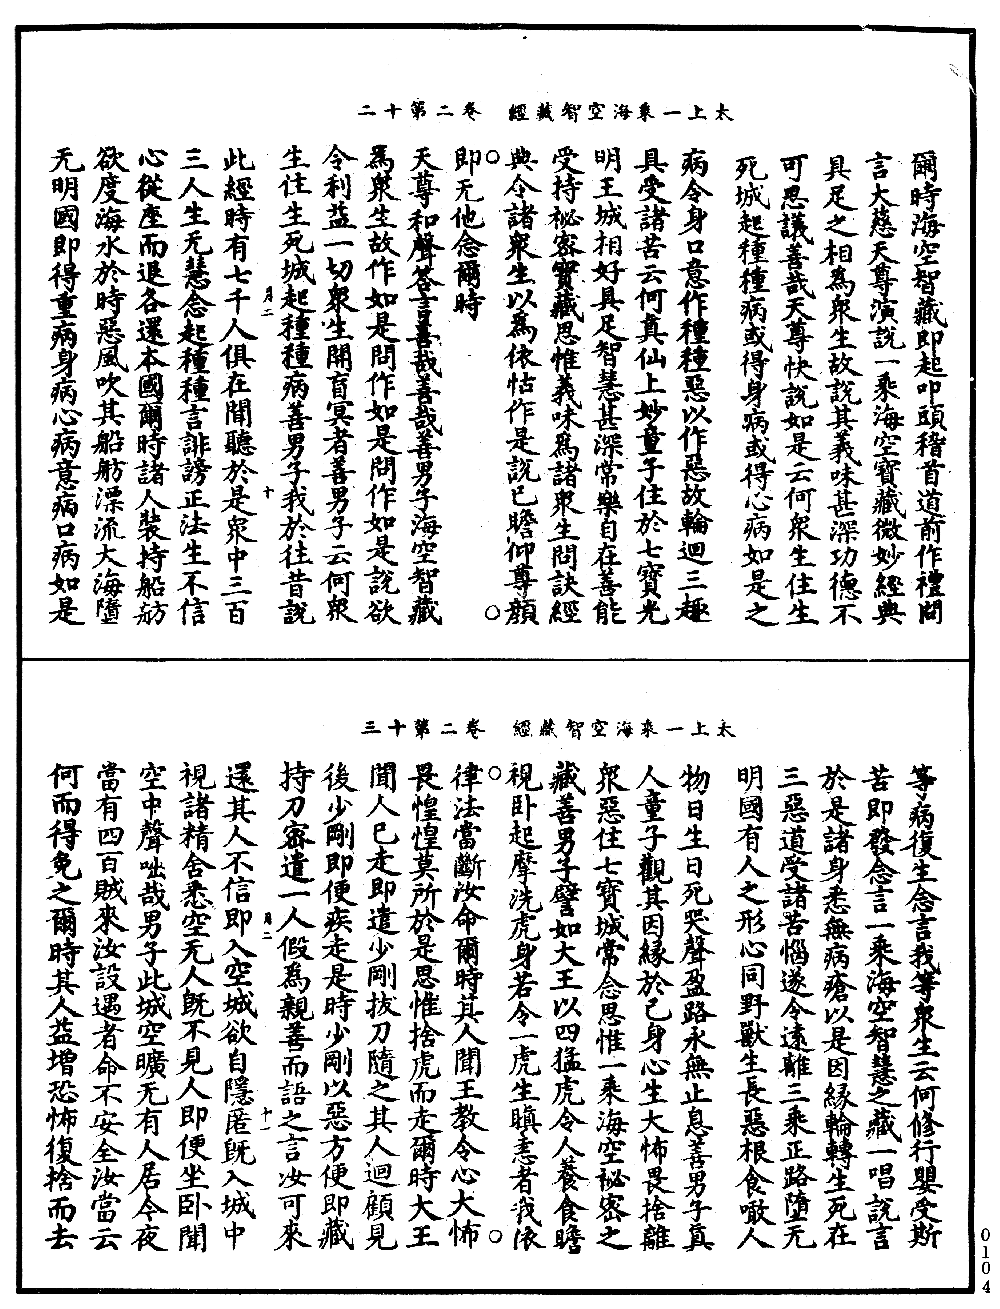 太上一乘海空智藏經　卷二第十二
爾時海空智藏即起叩頭稽首道前作禮問
言大慈天尊演說一乘海空寶藏微妙經典
具足之相為衆生故說其義味甚深功德不
可思議善哉天尊快說如是云何衆生住生
死城起種種病或得身病或得心病如是之
病令身口意作種種惡以作惡故輪迴三趣
具受諸苦云何真仙上妙童子住於七寶光
明王城相好具足智慧甚深常樂自在善能
受持祕密寶藏思惟義味為諸衆生問訣經
典令諸衆生以為依怙作是說已瞻仰尊顏
即无他念爾時
天尊和聲答言善哉善哉善男子海空智藏
為衆生故作如是問作如是問作如是說欲
令利益一切衆生開盲冥者善男子云何衆
生住生死城起種種病善男子我於往昔說
月二　十
此經時有七千人俱在聞聽於是衆中三百
三人生无慧念起種種言誹謗正法生不信
心從座而退各還本國爾時諸人裝持船舫
欲度海水於時惡風吹其船舫漂流大海墮
无明國即得重病身病心病意病口病如是
太上一乘海空智藏經　卷二第十三
等病復生念言我等衆生云何修行嬰受斯
苦即發念言一乘海空智慧之藏一唱說言
於是諸身悉無病瘡以是因緣輪轉生死在
三惡道受諸苦惱遂令遠離三乘正路墮无
明國有人之形心同野獸生長惡根食噉人
物日生日死哭聲盈路永無止息善男子真
人童子觀其因緣於已身心生大怖畏捨離
衆惡住七寶城常念思惟一乘海空祕密之
藏善男子譬如大王以四猛虎令人養食瞻
視卧起摩洗虎身若令一虎生瞋恚者我依
律法當斷汝命爾時其人聞王教令心大怖
畏惶惶莫所於是思惟捨虎而走爾時大王
聞人已走即遣少剛拔刀隨之其人迴顧見
後少剛即便疾走是時少剛以惡方便即藏
持刀密遣一人假為親善而語之言汝可來
月二　十一
還其人不信即入空城欲自隱匿既入城中
視諸精舍悉空无人既不見人即便坐卧聞
空中聲咄哉男子此城空曠无有人居今夜
當有四百賊來汝設遇者命不安全汝當云
何而得免之爾時其人益增恐怖復捨而去
0104